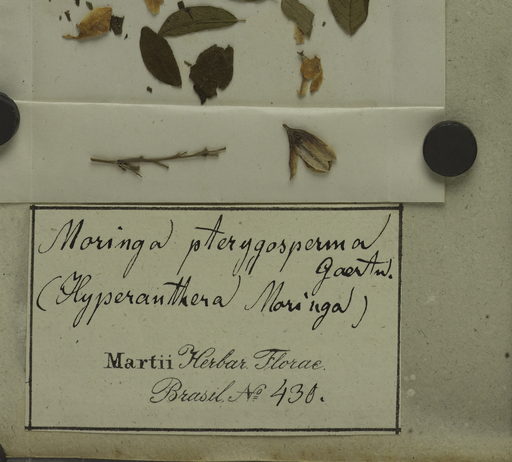 Moringa pterygosperma
Gaertn.
(Hyperanthera Moringa)
Martii Herbar. Florae
Brasil. No 430.